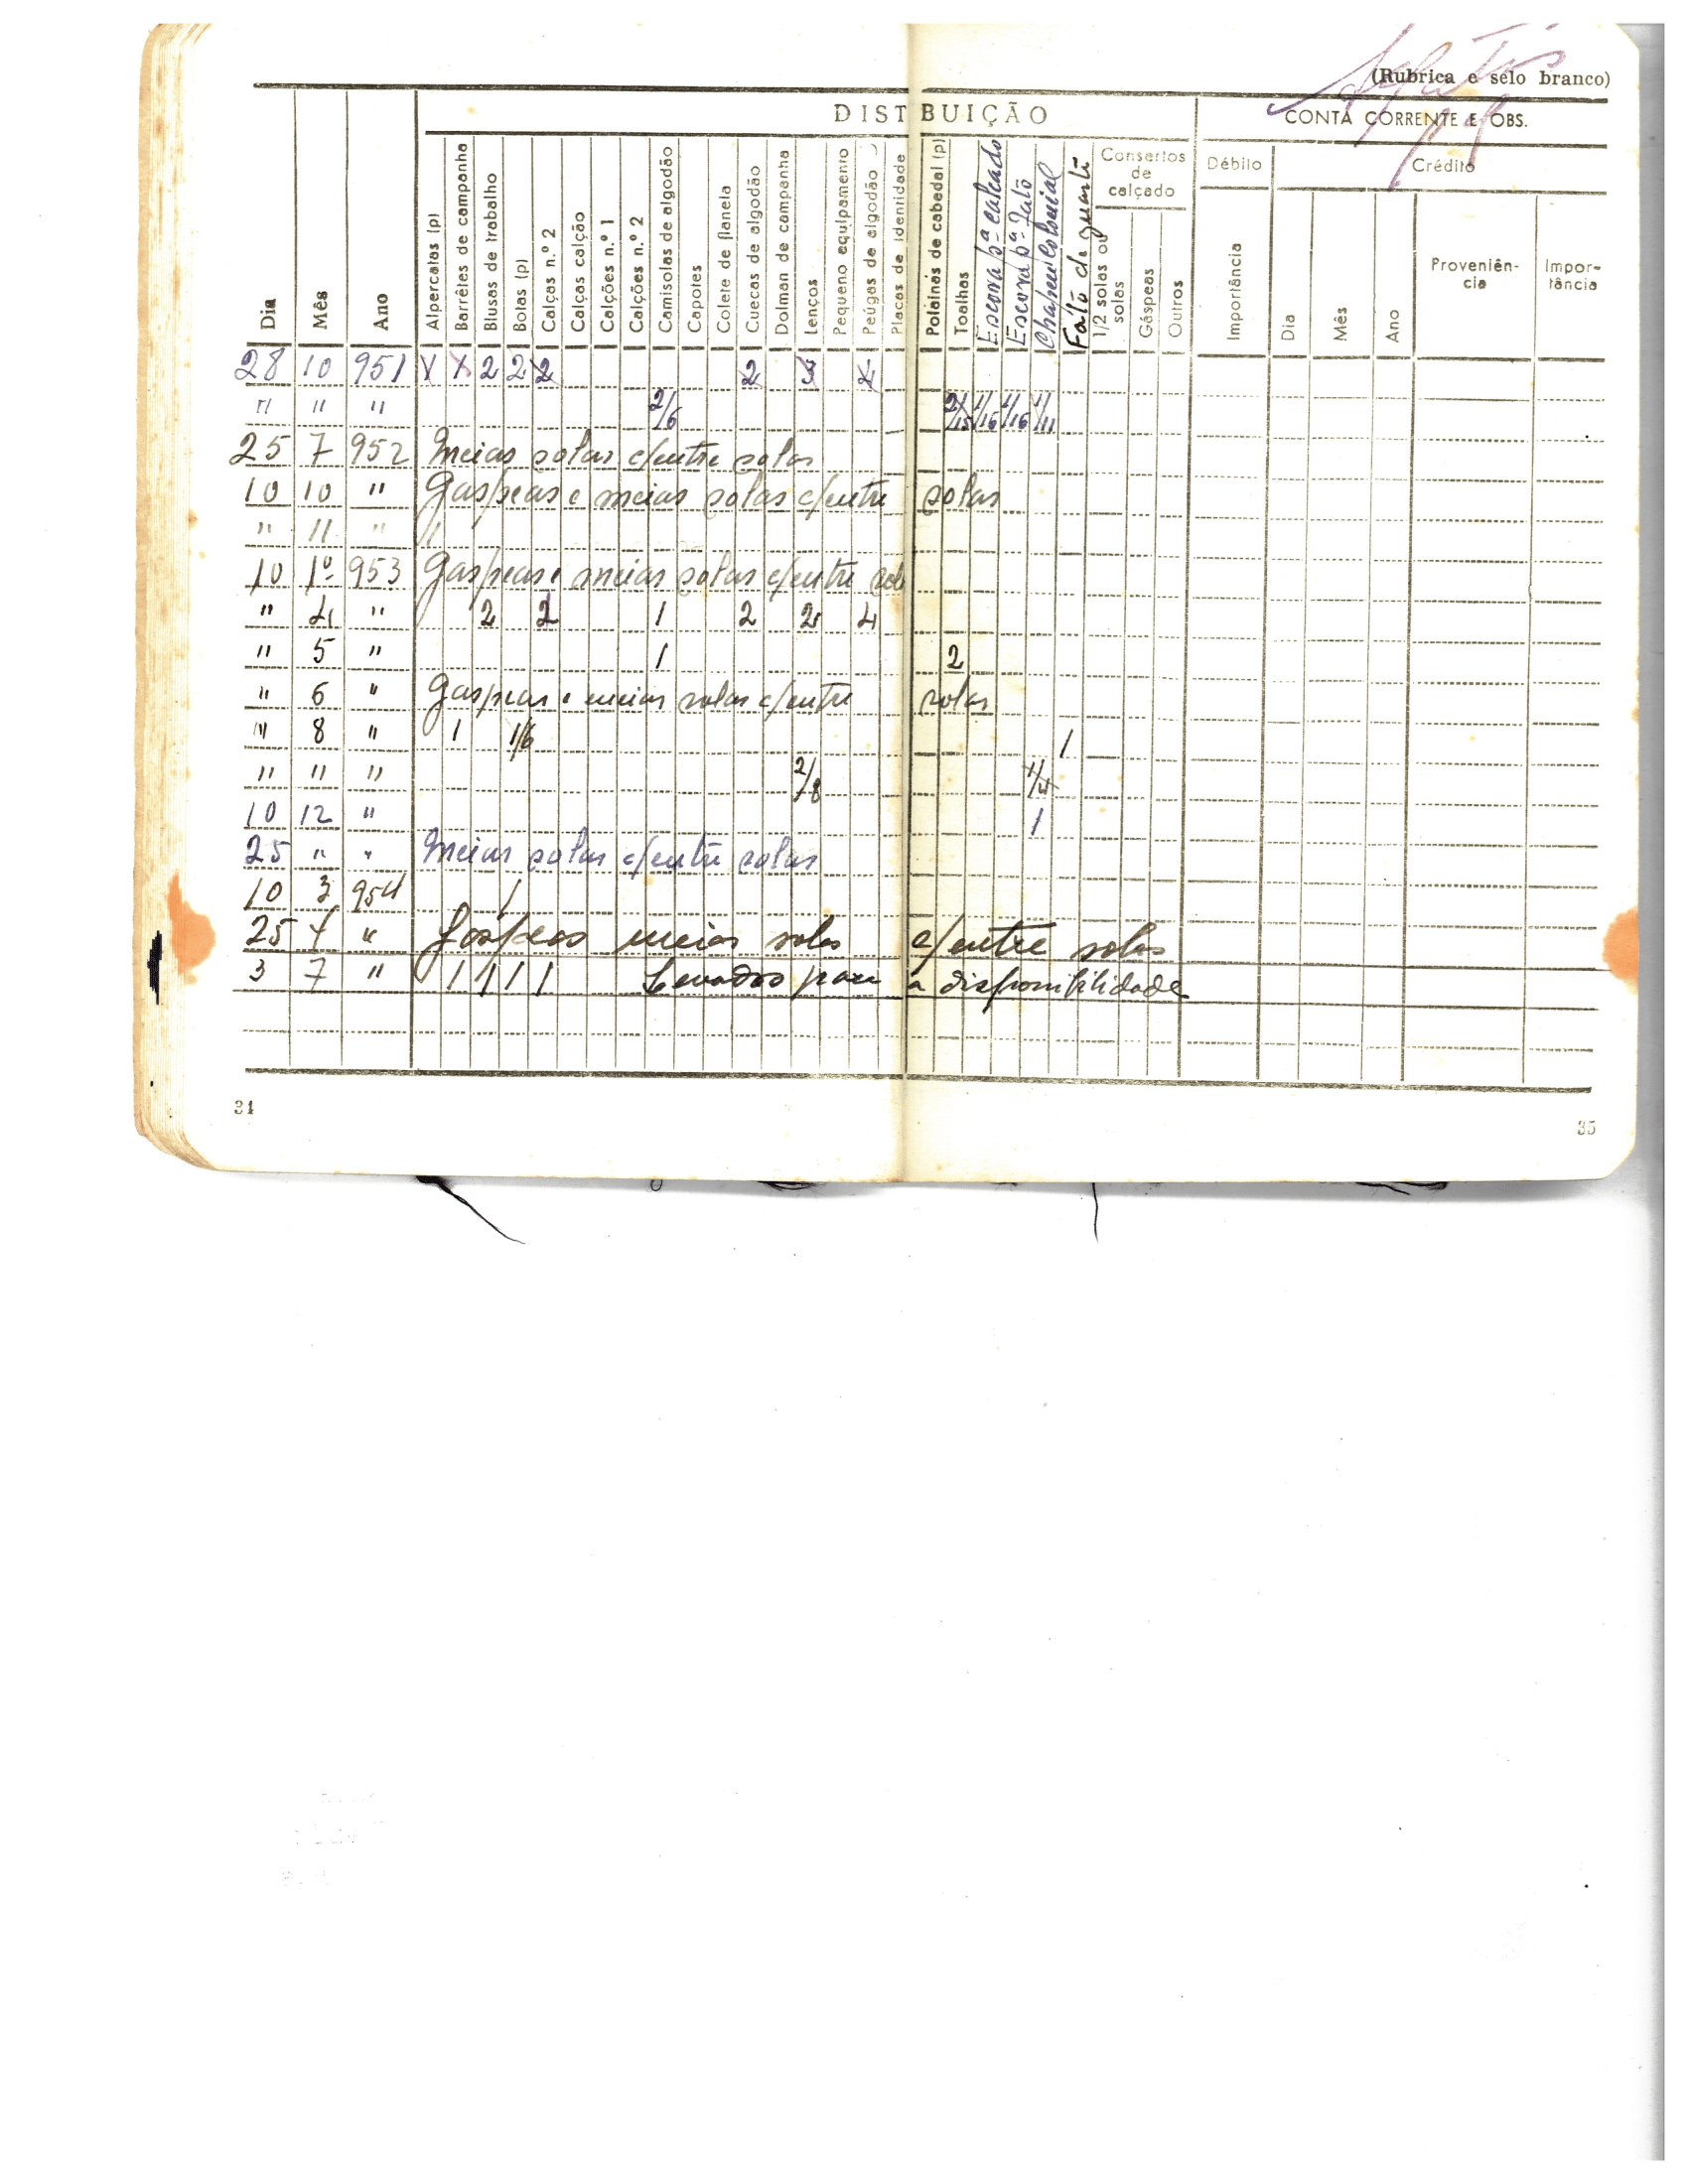 (Rubrica e selo branco)
DISTBUIÇÃO
CONTA CORRENTE E OBS.
Dia Mês Ano Alpercatas (p) Barrêtes de campanha Blusas de trabalho Botas (p) Calças n.º 2 Calças calção Calções n.º 1 Calções n.º 2 Camisolas de algodão Capotes Colete de flanela Cuecas de algodão Dolman de campanha Lenços Pequeno equipamento Peúgas de algodão Placas de identidade Polainas de cabedal (p) Toalhas Escova pª calcado Escova pª Fato Chapeu Colonial Fato de quartel
Consertos de calçado
1/2 solas ou solas Gáspeas Outros
Débito Crédito
Importância Dia Mês Ano Proveniên-cia Impor-tância
28 10 951 2 2 2 2 3
" " " 2/6 2/15 1/16 1/16 1/11
25 7 952 Meias solas c/entre solas
10 10 " Gaspeas e meias solas c/entre solas
" 11 " "
10 1º 953 Gaspeas e meias solas c/entre sola
" 4 " 2 2 1 2 2 4
" 5 " 1 2
" 6 " Gaspeas e meias solas c/entre solas
" 8 " 1 1/6 1
" " " 2/8 1/4
10 12 " 1
25 " " Meias solas c/entre solas
10 3 954 1
25 4 " Gaspeas meias solas c/entre solas
3 7 " 1 1 1 1 Levados para a disponibilidade
34
35